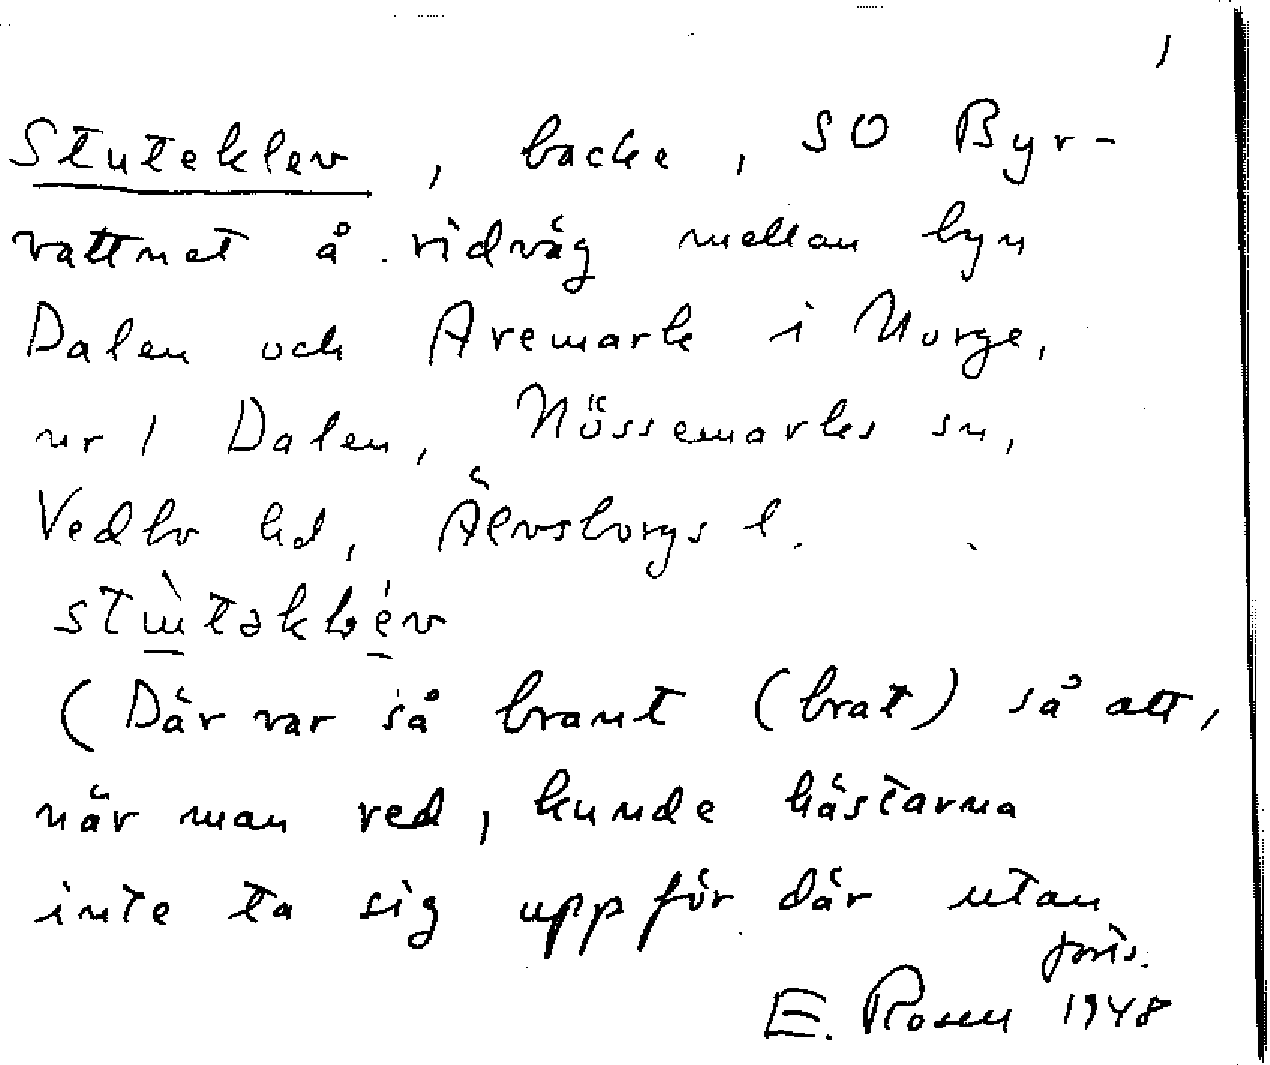 1
Stuteklev, backe, SO Byr-
vattnet å ridväg mellan byn
Dalen och Aremark i Norge,
nr 1 Dalen, Nössemarks sn,
Vedbo hd, Älvsborgs l.
(Där var så brant (brat) så att,
när man red, kunde hästarna
inte ta sig uppför där utan
forts.
E. Rosen 1948